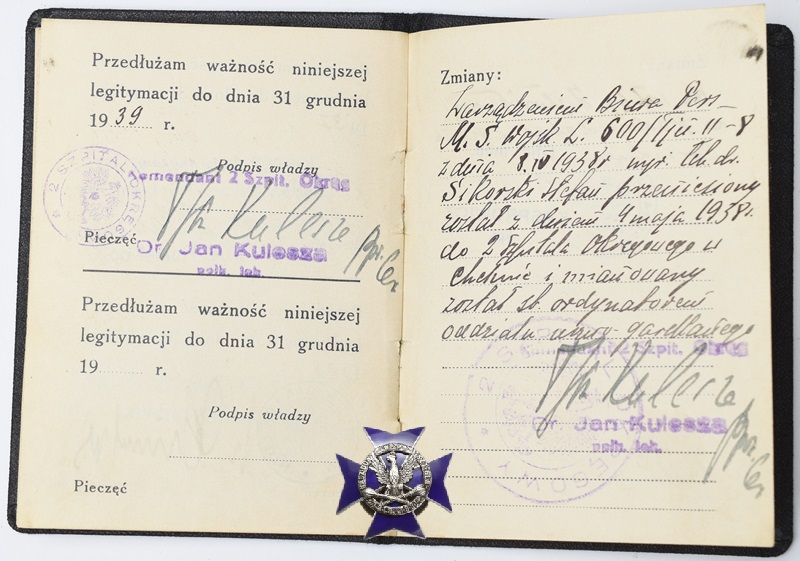 Przedłużam ważność niniejszej
legitymacji do dnia 31 grudnia
1939 r.
Podpis władzy
Komendant 2 Szpit. Okręg
Kulesza
Pieczęć
Dr. Jan Kulesza
płk. lek.
Przedłużam ważność niniejszej
legitymacji do dnia 31 grudnia
19 r.
Podpis władzy
Pieczęć
Zmiany:
Zarządzeniem Biura Pers
M. S. Wojsk L. 600/ II-8
z dnia 8.IV 1938r mjr. lek. dr.
Sikorski Stefan przeniesiony
został z dniem 4 maja 1938r.
do 2 Szpitala Okręgowego w
Chełmie i mianowany
został st. ordynatorem
oddziału
Komendant 2 Szpit. Okręg
Kulesza
Dr. Jan Kulesza
płk. lek.